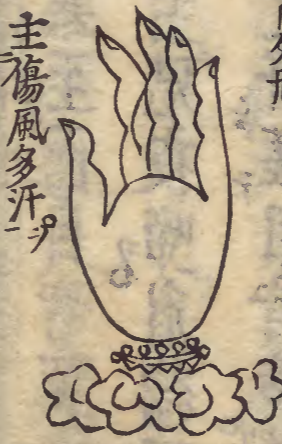 主傷風多汗